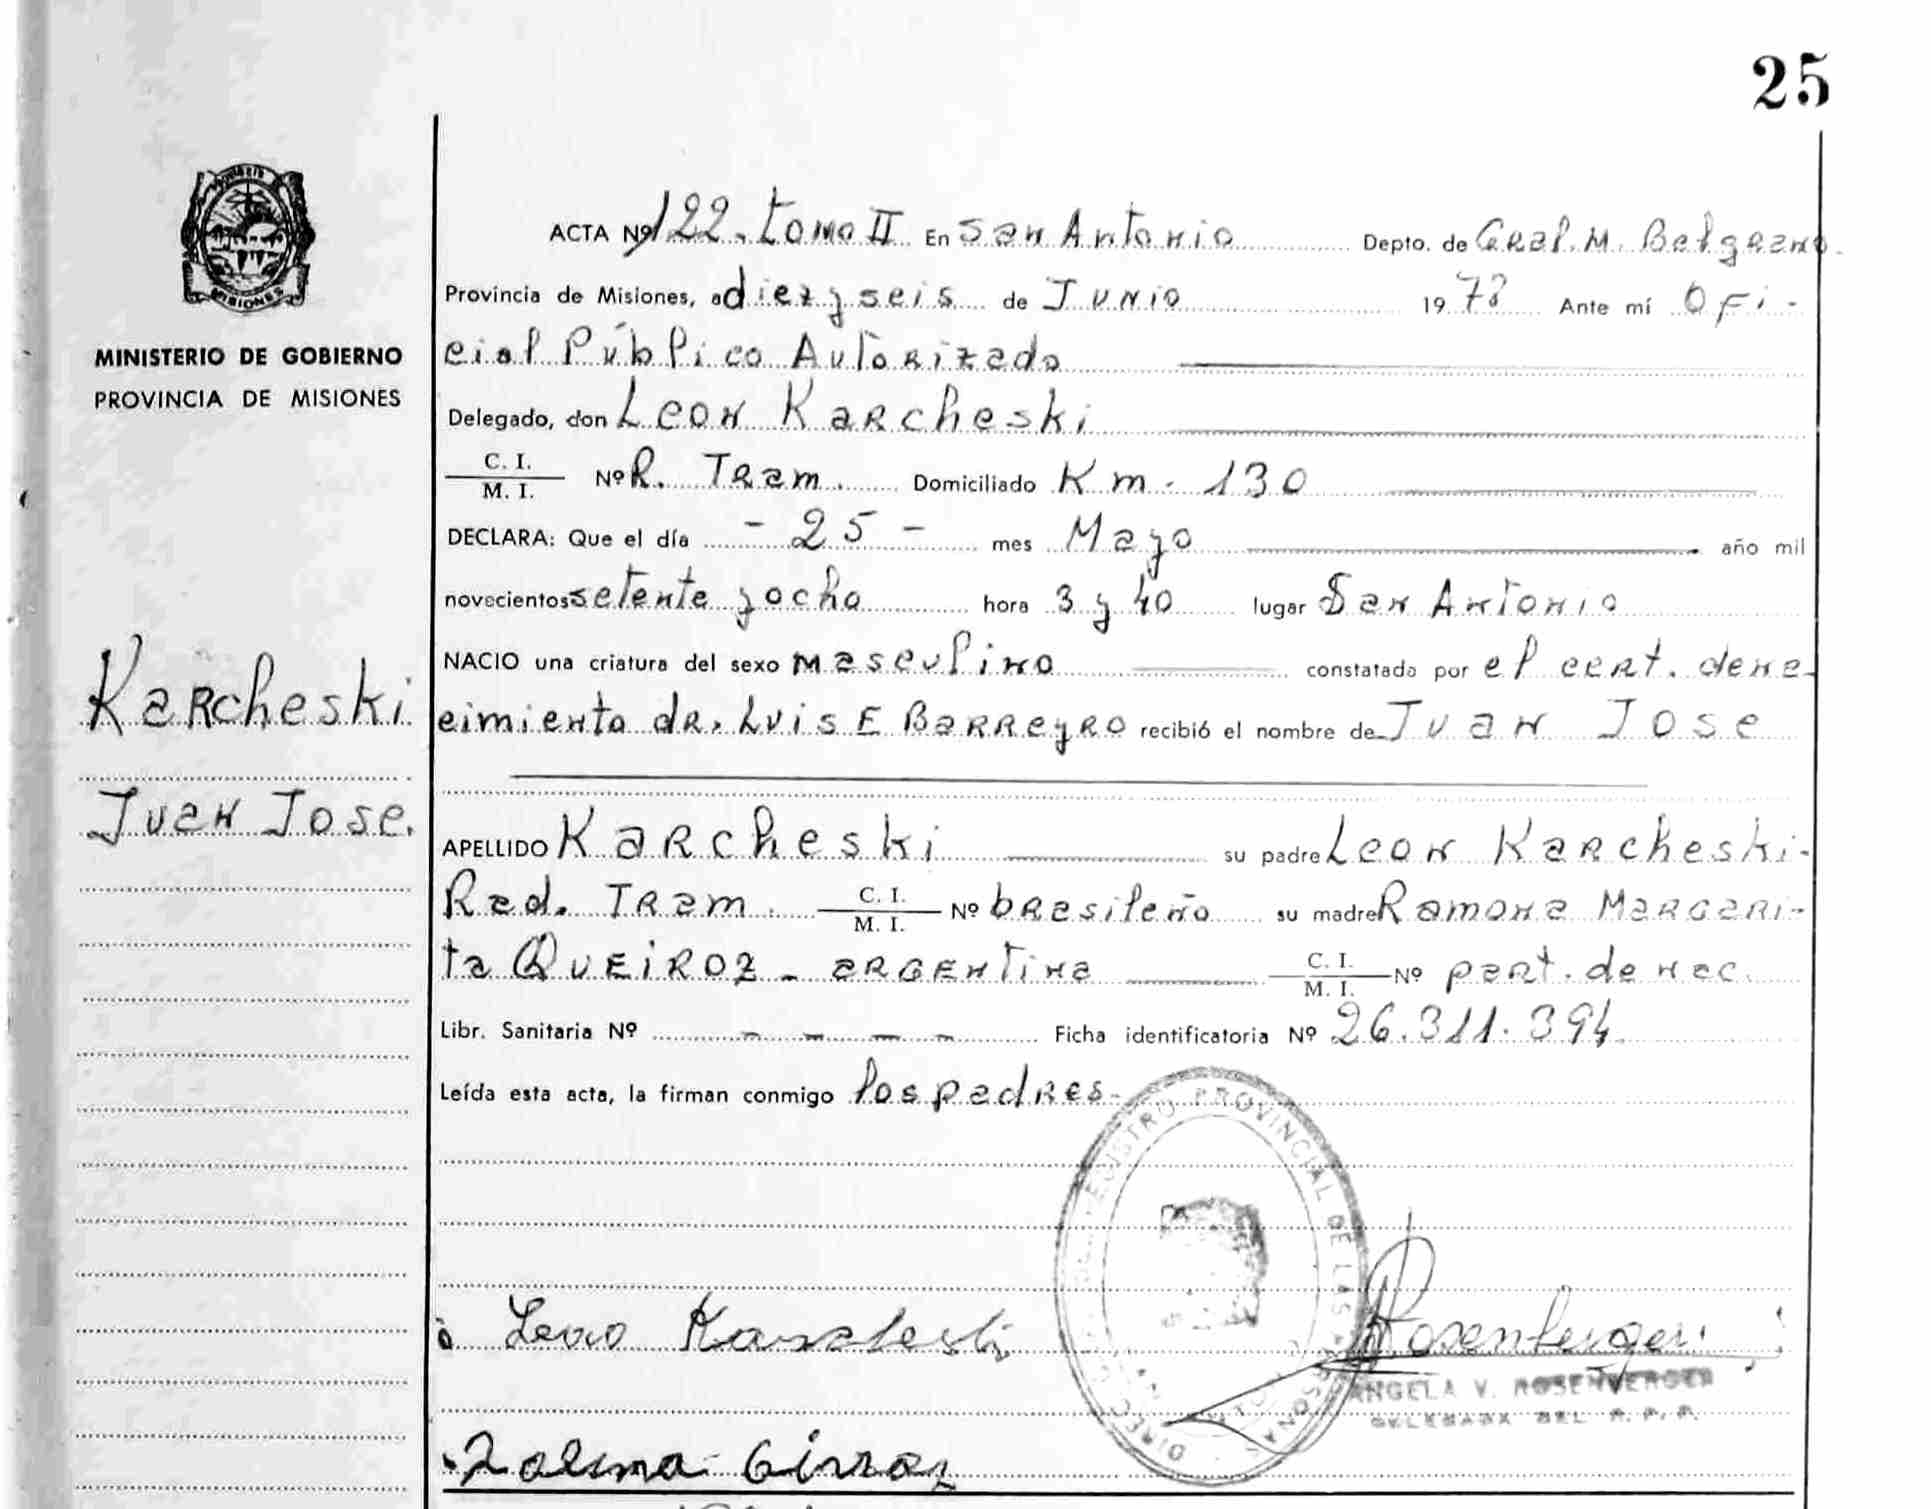 25
ACTA Nº 122. Tomo II En San Antonio Depto. de Gral. M. Belgrano.
Provincia de Misiones, a diez y seis de Junio 1978 Ante mí Ofi-
cial Público Autorizado
Delegado, don Leon Karcheski
C. I. / M. I. Nº R. Tram. Domiciliado Km. 130
DECLARA: Que el día - 25 - mes Mayo año mil
novecientos setenta y ocho hora 3 y 40 lugar San Antonio
NACIO una criatura del sexo masculino constatada por el cert. de na-
cimiento dr. Luis E Barreyro recibió el nombre de Juan Jose
APELLIDO Karcheski su padre Leon Karcheski-
Rad. Tram. C. I. / M. I. Nº brasileño su madre Ramona Margari-
ta Queiroz - argentina C. I. / M. I. Nº part. de nac.
Libr. Sanitaria Nº - - - - Ficha identificatoria Nº 26.311.394
Leída esta acta, la firman conmigo los padres-
MISIONES
MINISTERIO DE GOBIERNO
PROVINCIA DE MISIONES
Karcheski
Juan Jose.
REGISTRO PROVINCIAL DE LAS PERSONAS
Leao Karcheski
Rosenberger
ANGELA V. ROSENBERGER
DELEGADA DEL R. P. P.